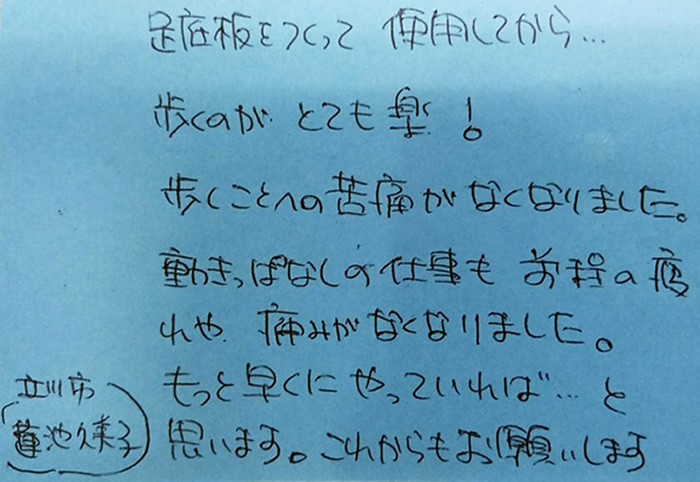 足底板をつくって 使用してから…
歩くのが とても楽!
歩くことへの苦痛がなくなりました。
動きっぱなしの仕事も 前程の疲
れや 痛みがなくなりました。
もっと早くにやっていれば…と
思います。これからもお願いします
立川市
蓮池久美子